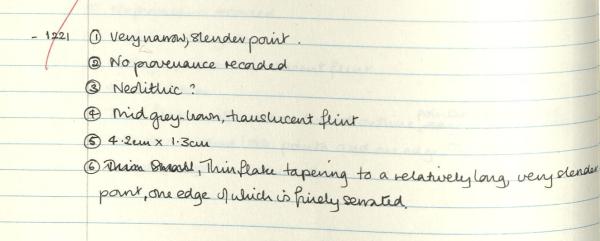 - 1221 ① Very narrow, slender point.
② No provenance recorded
③ Neolithic?
④ Mid grey-brown, translucent flint
⑤ 4.2cm x 1.3cm
⑥ Small, Thin flake tapering to a relatively long, very slender
point, one edge of which is finely serrated.